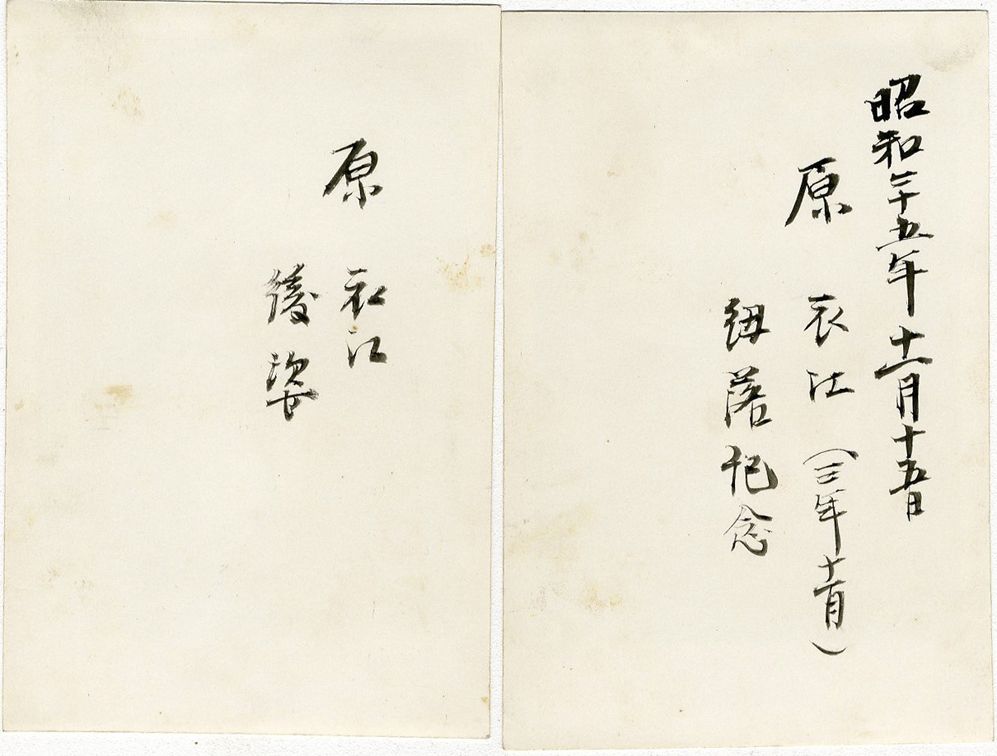 昭和二十五年十一月十五日
原 衣江（三年十一月）
紐落記念
原 衣江
後姿